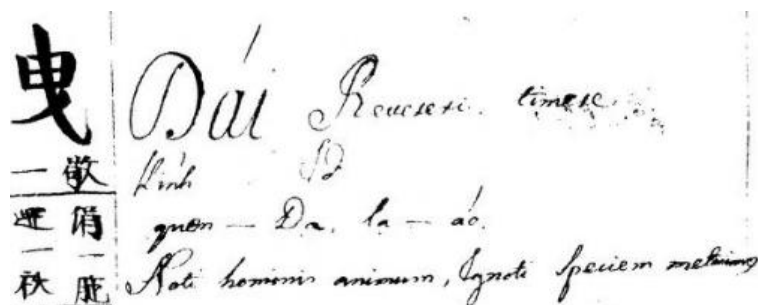 曳 Dái Revereri. timere.
一 敬 Kính Id
quen — Da, la — áo.
Noti hominis animum, Ignoti speciem metuimus